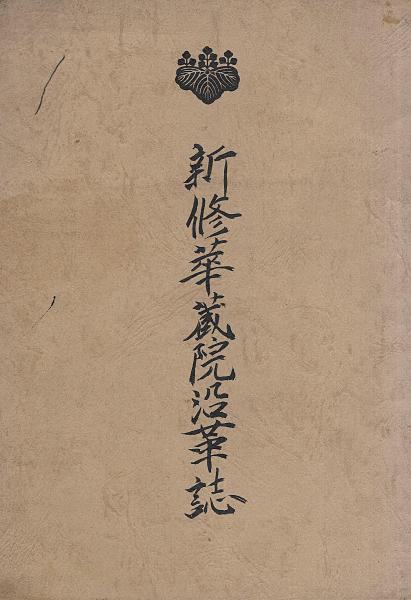 新修華蔵院沿革誌